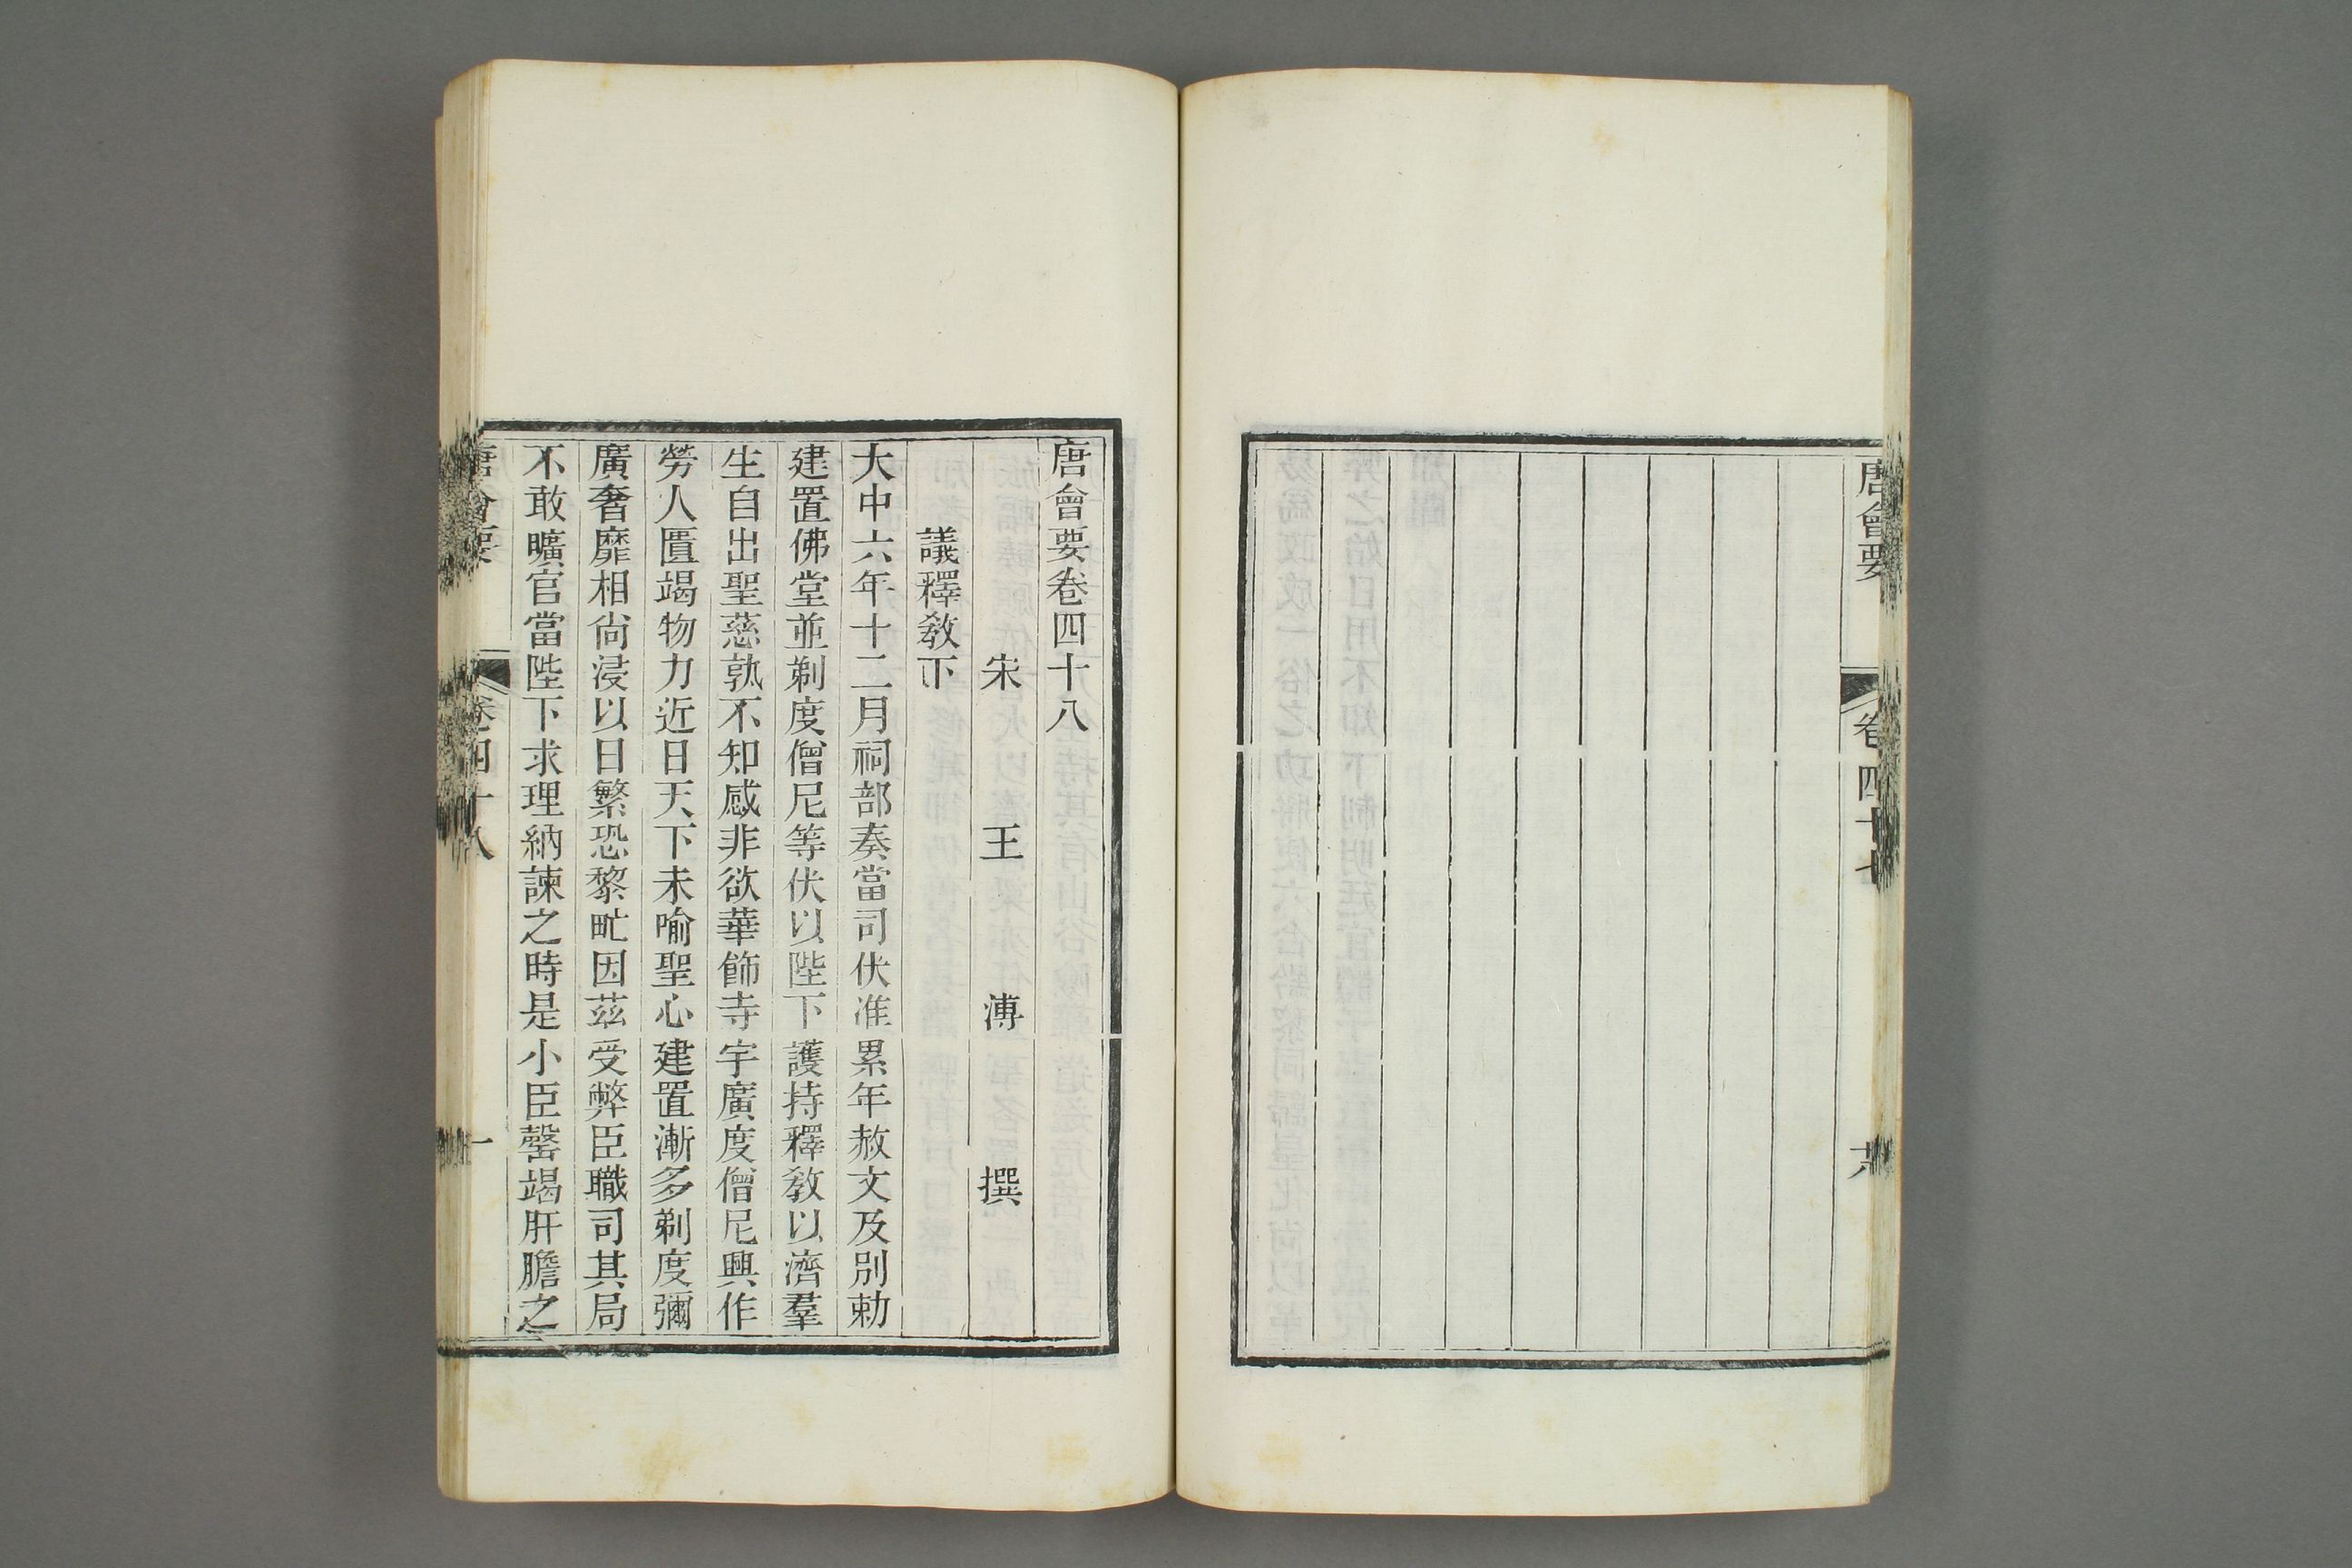 唐會要
卷四十七
唐會要卷四十八
宋王溥撰
議釋教下
大中六年十二月祠部奏當司伏准累年赦文及別勅
建置佛堂並剃度僧尼等伏以陛下護持釋教以濟羣
生自出聖慈孰不知感非欲華飾寺宇廣度僧尼興作
勞人匱竭物力近日天下未喻聖心建置漸多剃度彌
廣奢靡相尙浸以日繁恐黎甿因茲受弊臣職司其局
不敢曠官當陛下求理納諫之時是小臣罄竭肝膽之
唐會要
卷四十八
一